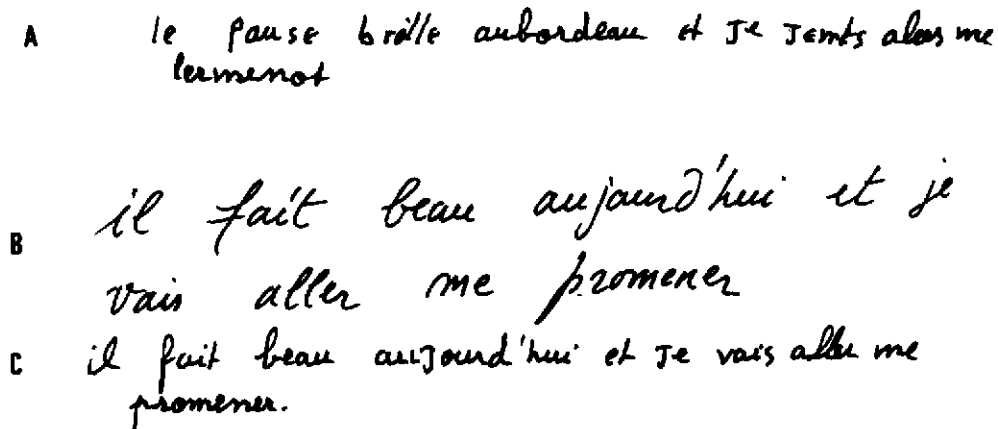 A le pause brille aubordeau et Je Jemts alors me
lermenot
B il fait beau aujourd'hui et je
vais aller me promener
C il fait beau aujourd'hui et Je vais aller me
promener.